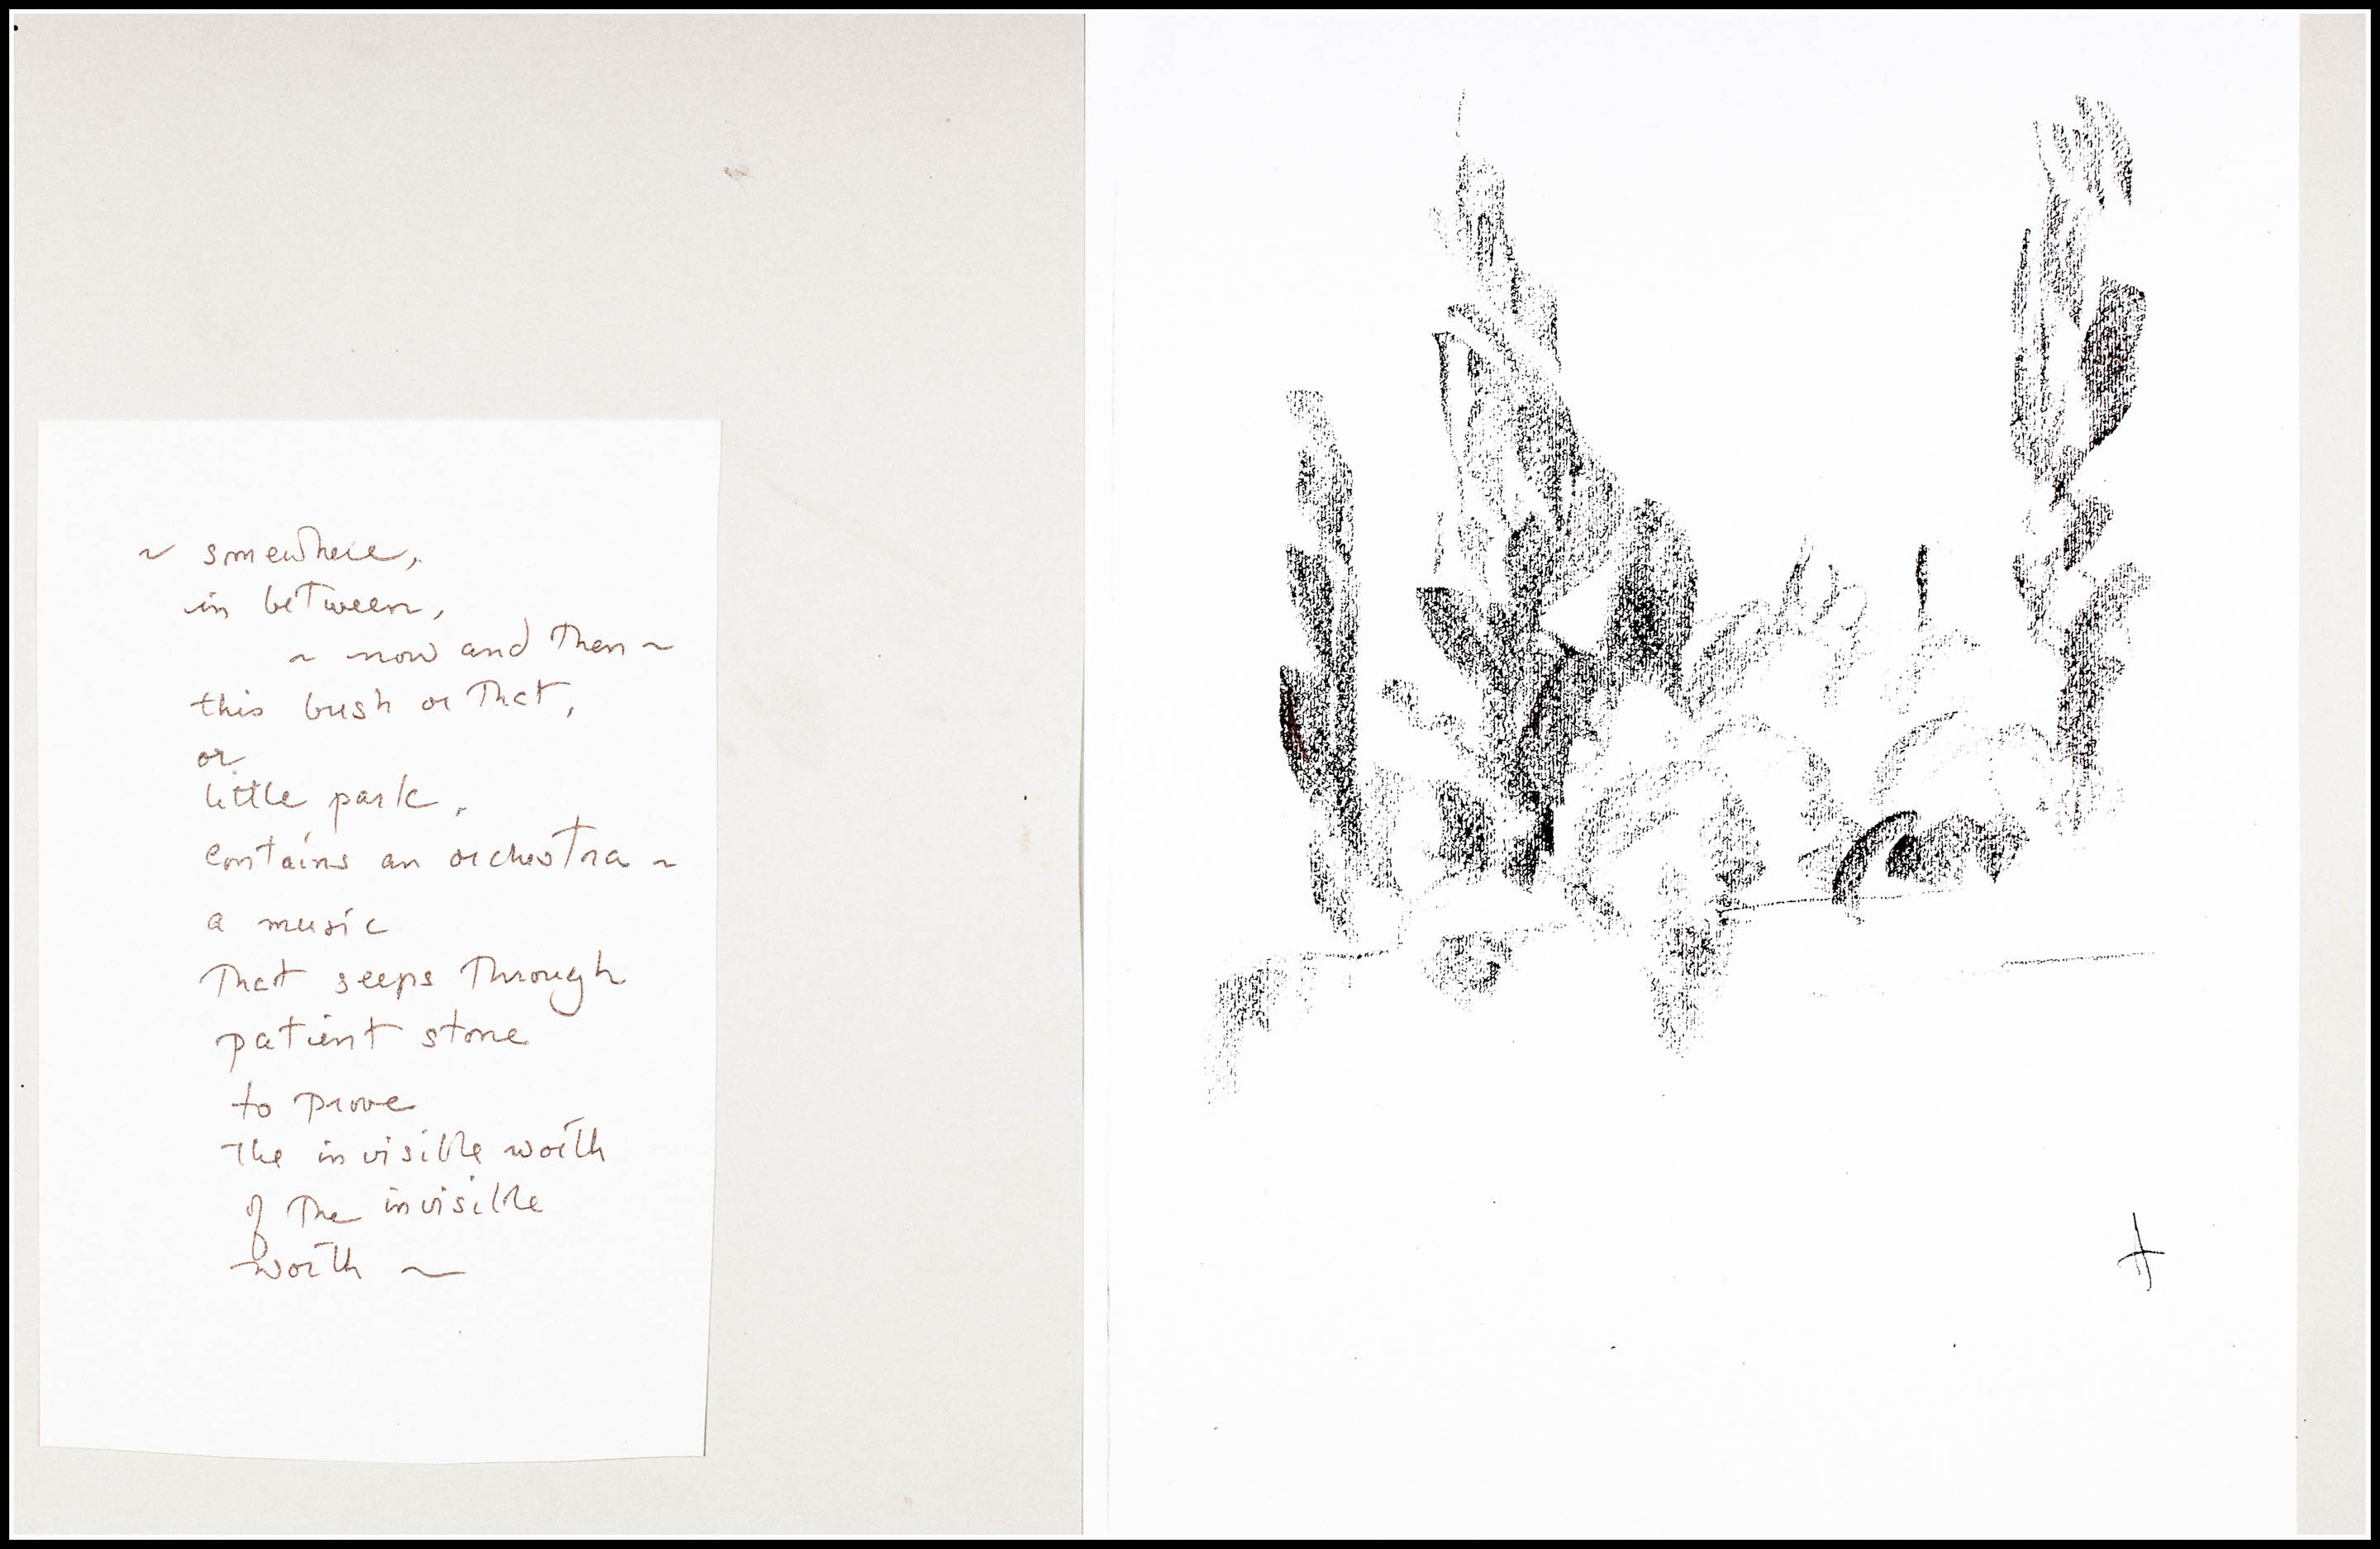 ~ somewhere,
in between,
~ now and then ~
this bush or that,
or
little park,
contains an orchestra ~
a music
that seeps through
patient stone
to prove
the invisible worth
of the invisible
worth ~